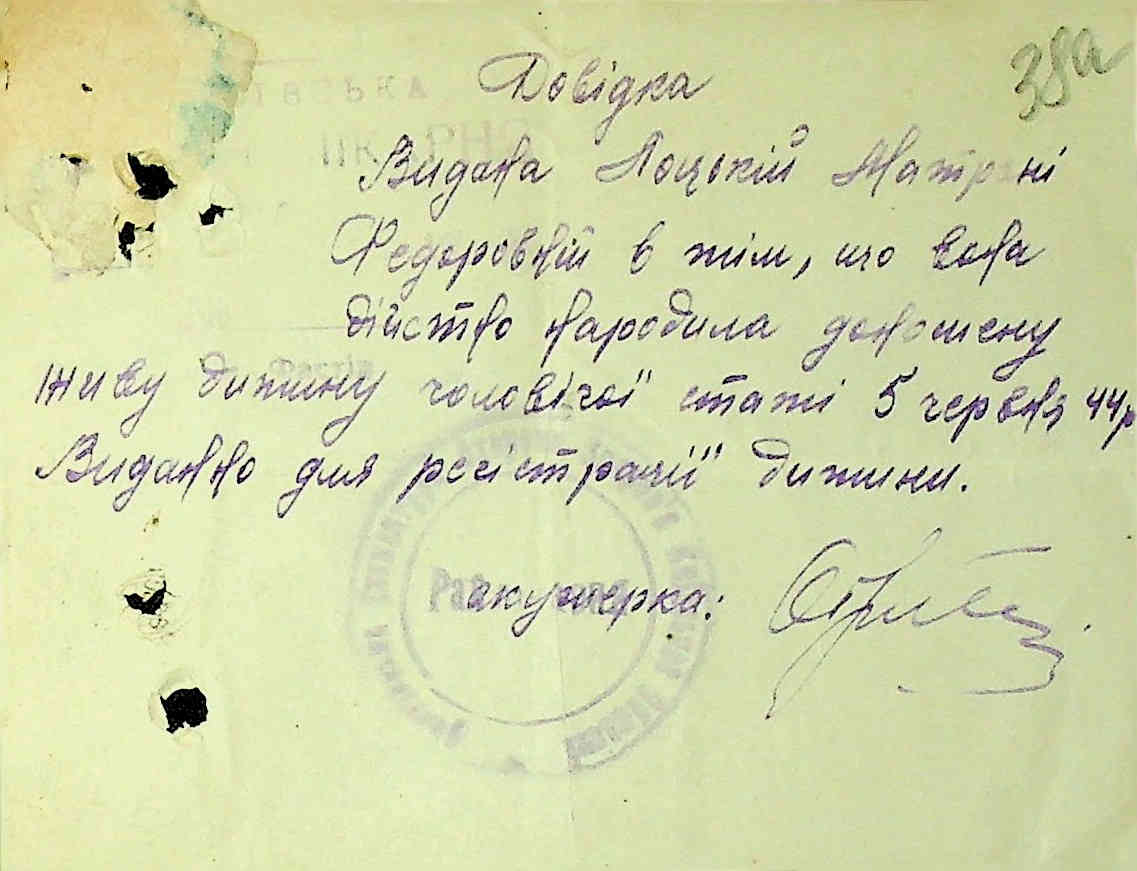 38а
Довідка
Видана Лоцькій Матрені
Федоровній в тім, що вона
дійстно народила доношену
живу дитину чоловічої статі 5 червня 44р
Виданно для регістрації дитини.
акушерка: